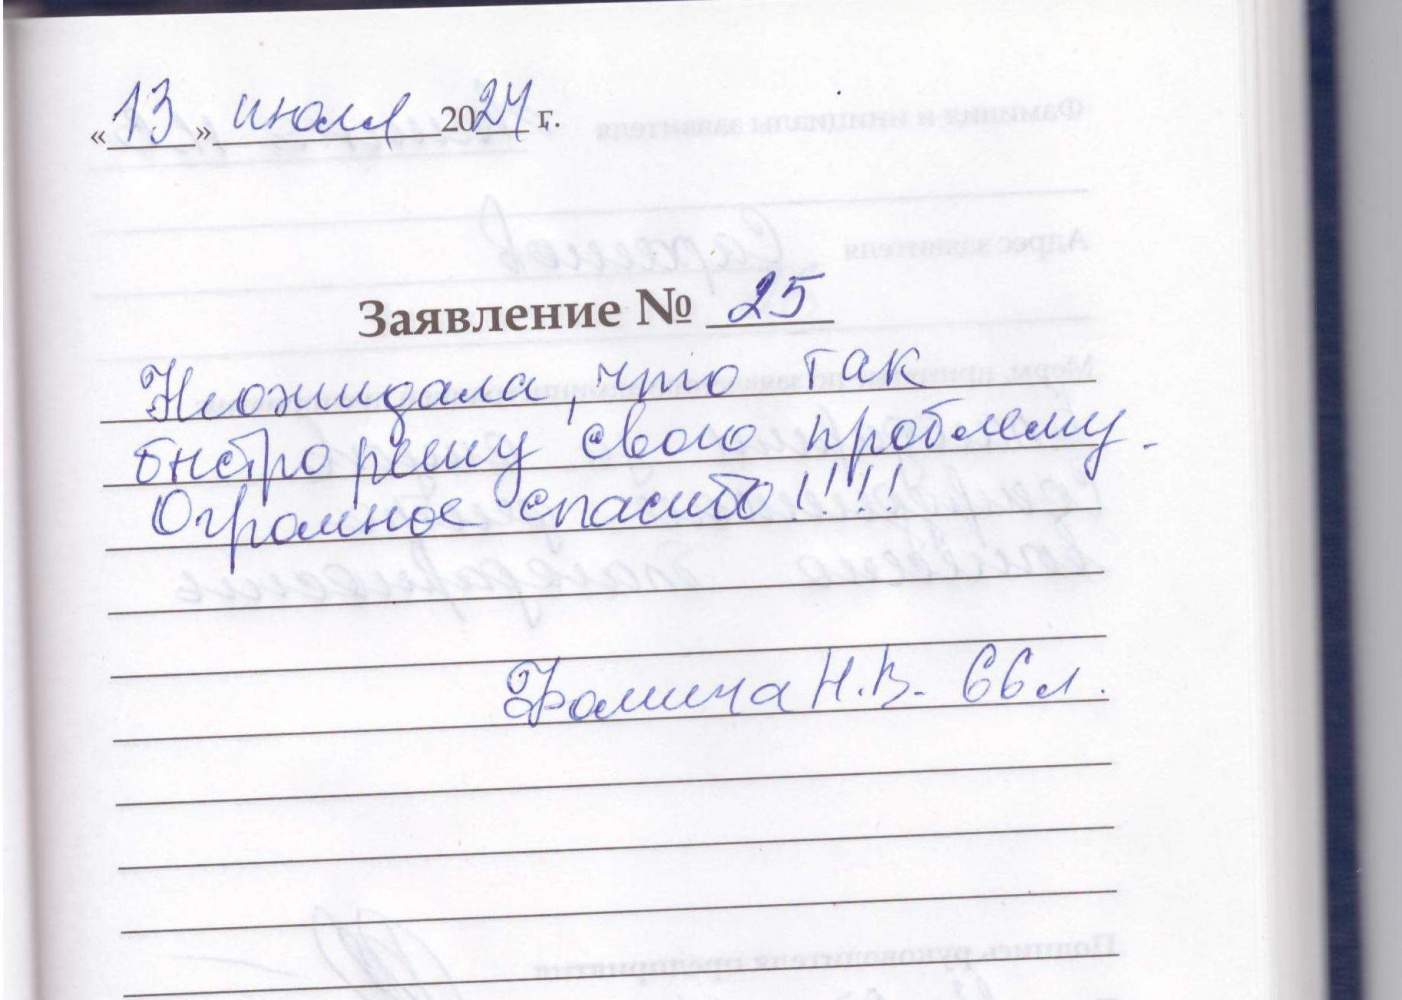 «13» июля 2024 г.
Заявление № 25
Неожидала, что так
быстро решу свою проблему.
Огромное спасибо!!!!!
Фомина Н.В. 66 л.